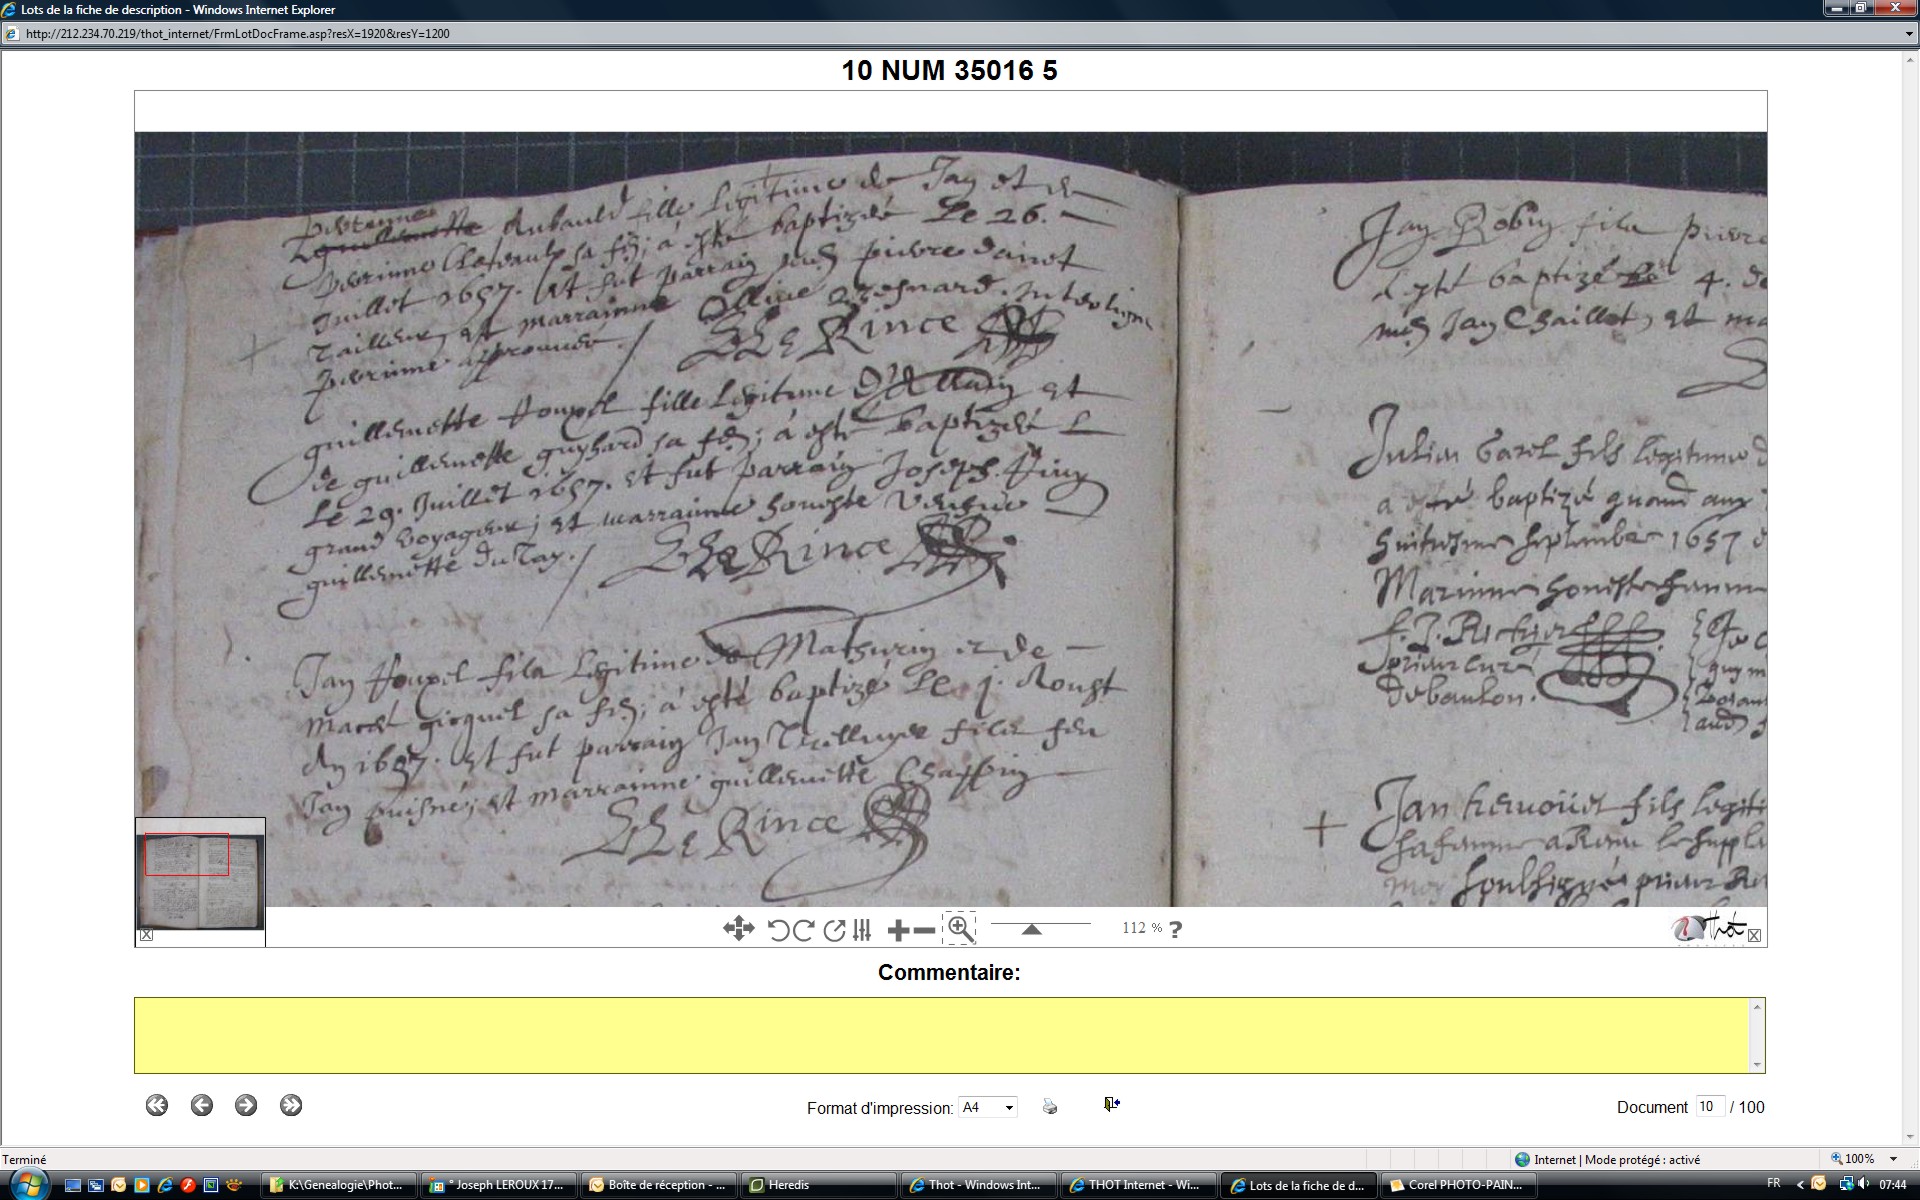 Lots de la fiche de description - Windows Internet Explorer
http://212.234.70.219/thot_internet/FrmLotDocFrame.asp?resX=1920&resY=1200
10 NUM 35016 5
Perrinne
guillemette Aubauld fille legitime de Jan et de
Perrinne sa fe; a esté baptizée Le 26.
Juillet 1657. Et fut parrain pierre danet
Tailleur et marrainne Ollive Thesnard. Interligne
perrinne approuvée.
Le Rince
guillemette houpel fille Legitime D'Allain et
de guillemette guyhard sa fe; a esté baptizée
Le 29. Juillet 1657. et fut parrain Joseph
grand voyageur; et marrainne honeste
guillemette Du Tay.
Le Rince
Jan houpel fils Legitime de Mathurin et de
Macée gicquel sa fe; a esté baptizé Le j. Aoust
An 1657. Et fut parrain Jan fils feu
Jan puisné; et marrainne guillemette Chappin
Le Rince
Jan Robin fils pierre
a esté baptizé le 4. de
Jan Chaillot, et ma
Julien Garel fils legitime d
a esté baptizé quand aux
huitiesme septembre 1657
Marinne honeste femme
prieur curé
de baulon.
Jan hervoüet fils legiti
sa femme a Reçeu le suppl
moy soubsigné prieur Re
112 % ?
Thot
Commentaire:
Format d'impression: A4
Document 10 / 100
Terminé
Internet | Mode protégé : activé
100%
K:\Genealogie\Phot...
° Joseph LEROUX 17...
Boîte de réception - ...
Heredis
Thot - Windows Int...
THOT Internet - Wi...
Lots de la fiche de d...
Corel PHOTO-PAIN...
FR
07:44